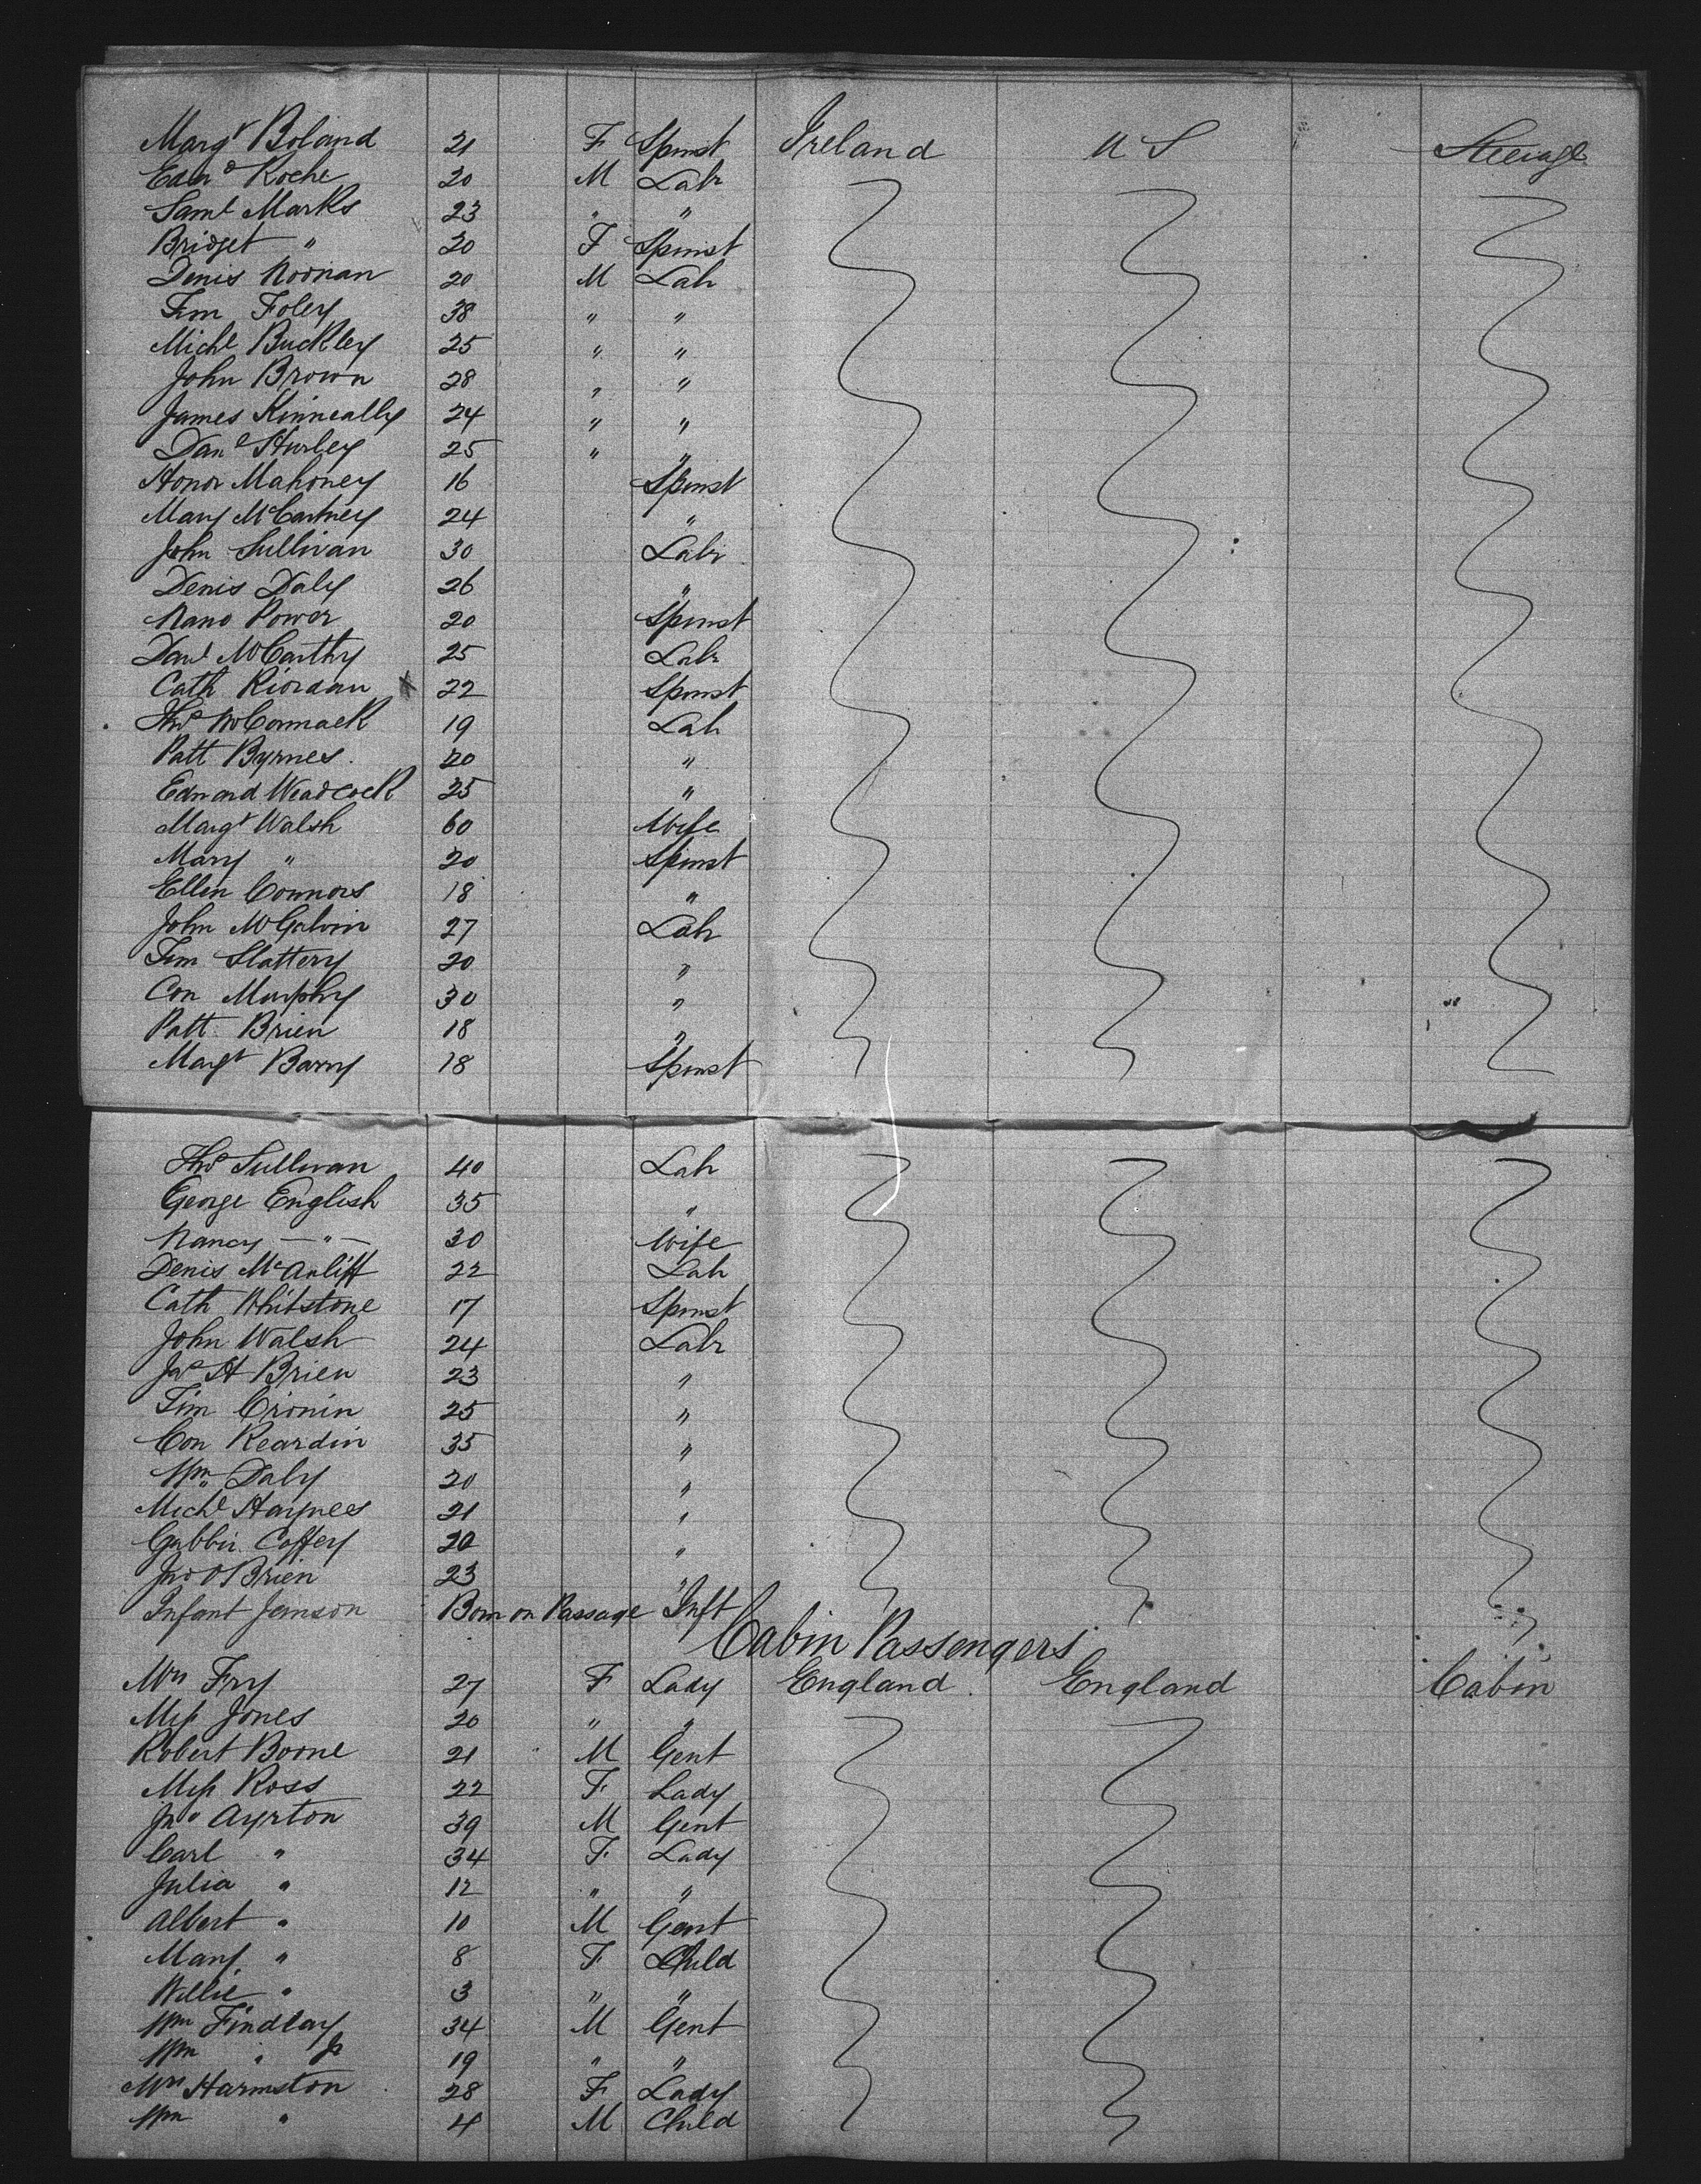 Margt Boland 21 F Spinst Ireland U S Steerage
Edmd Roche 20 M Labr
Saml Marks 23 " "
Bridget " 20 F Spinst
Denis Noonan 20 M Labr
Tim Foley 38 " "
Michl Buckley 25 " "
John Brown 28 " "
James Kinneally 24 " "
Danl Hurley 25 " "
Honor Mahoney 16 Spinst
Mary McCartney 24 "
John Sullivan 30 Labr
Denis Daly 26 "
Nano Power 20 Spinst
Danl McCarthy 25 Labr
Cath Riordan 22 Spinst
Thos McCormack 19 Labr
Patt Byrnes 20 "
Edmond Weadcock 25 "
Margt Walsh 60 Wife
Mary " 20 Spinst
Ellen Connors 18 "
John McGalvin 27 Labr
Tim Slattery 20 "
Con Murphy 30 "
Patt Brien 18 "
Margt Barry 18 Spinst
Thos Sullivan 40 Labr
George English 35 "
Nancy — " — 30 Wife
Denis McAuliff 22 Labr
Cath Whitstone 17 Spinst
John Walsh 24 Labr
Jas H Brien 23 "
Tim Cronin 25 "
Con Reardin 35 "
Wm Daly 20 "
Michl Haynes 21 "
Gubbin Coffey 20 "
Jno OBrien 23 "
Infant Jemson Born on Passage Inft
Cabin Passengers
Mrs Fry 27 F Lady England England Cabin
Miss Jones 20 " "
Robert Boone 21 M Gent
Miss Ross 22 F Lady
Jno Ayrton 39 M Gent
Carl " 34 F Lady
Julia " 12 " "
Albert " 10 M Gent
Mary " 8 F Child
Willie " 3 " "
Wm Findlay 34 M Gent
Wm " Jr 19 " "
Mrs Harmston 28 F Lady
Wm " 4 M Child